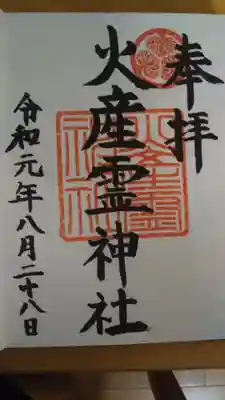 奉拝
火産霊神社
令和元年八月二十八日